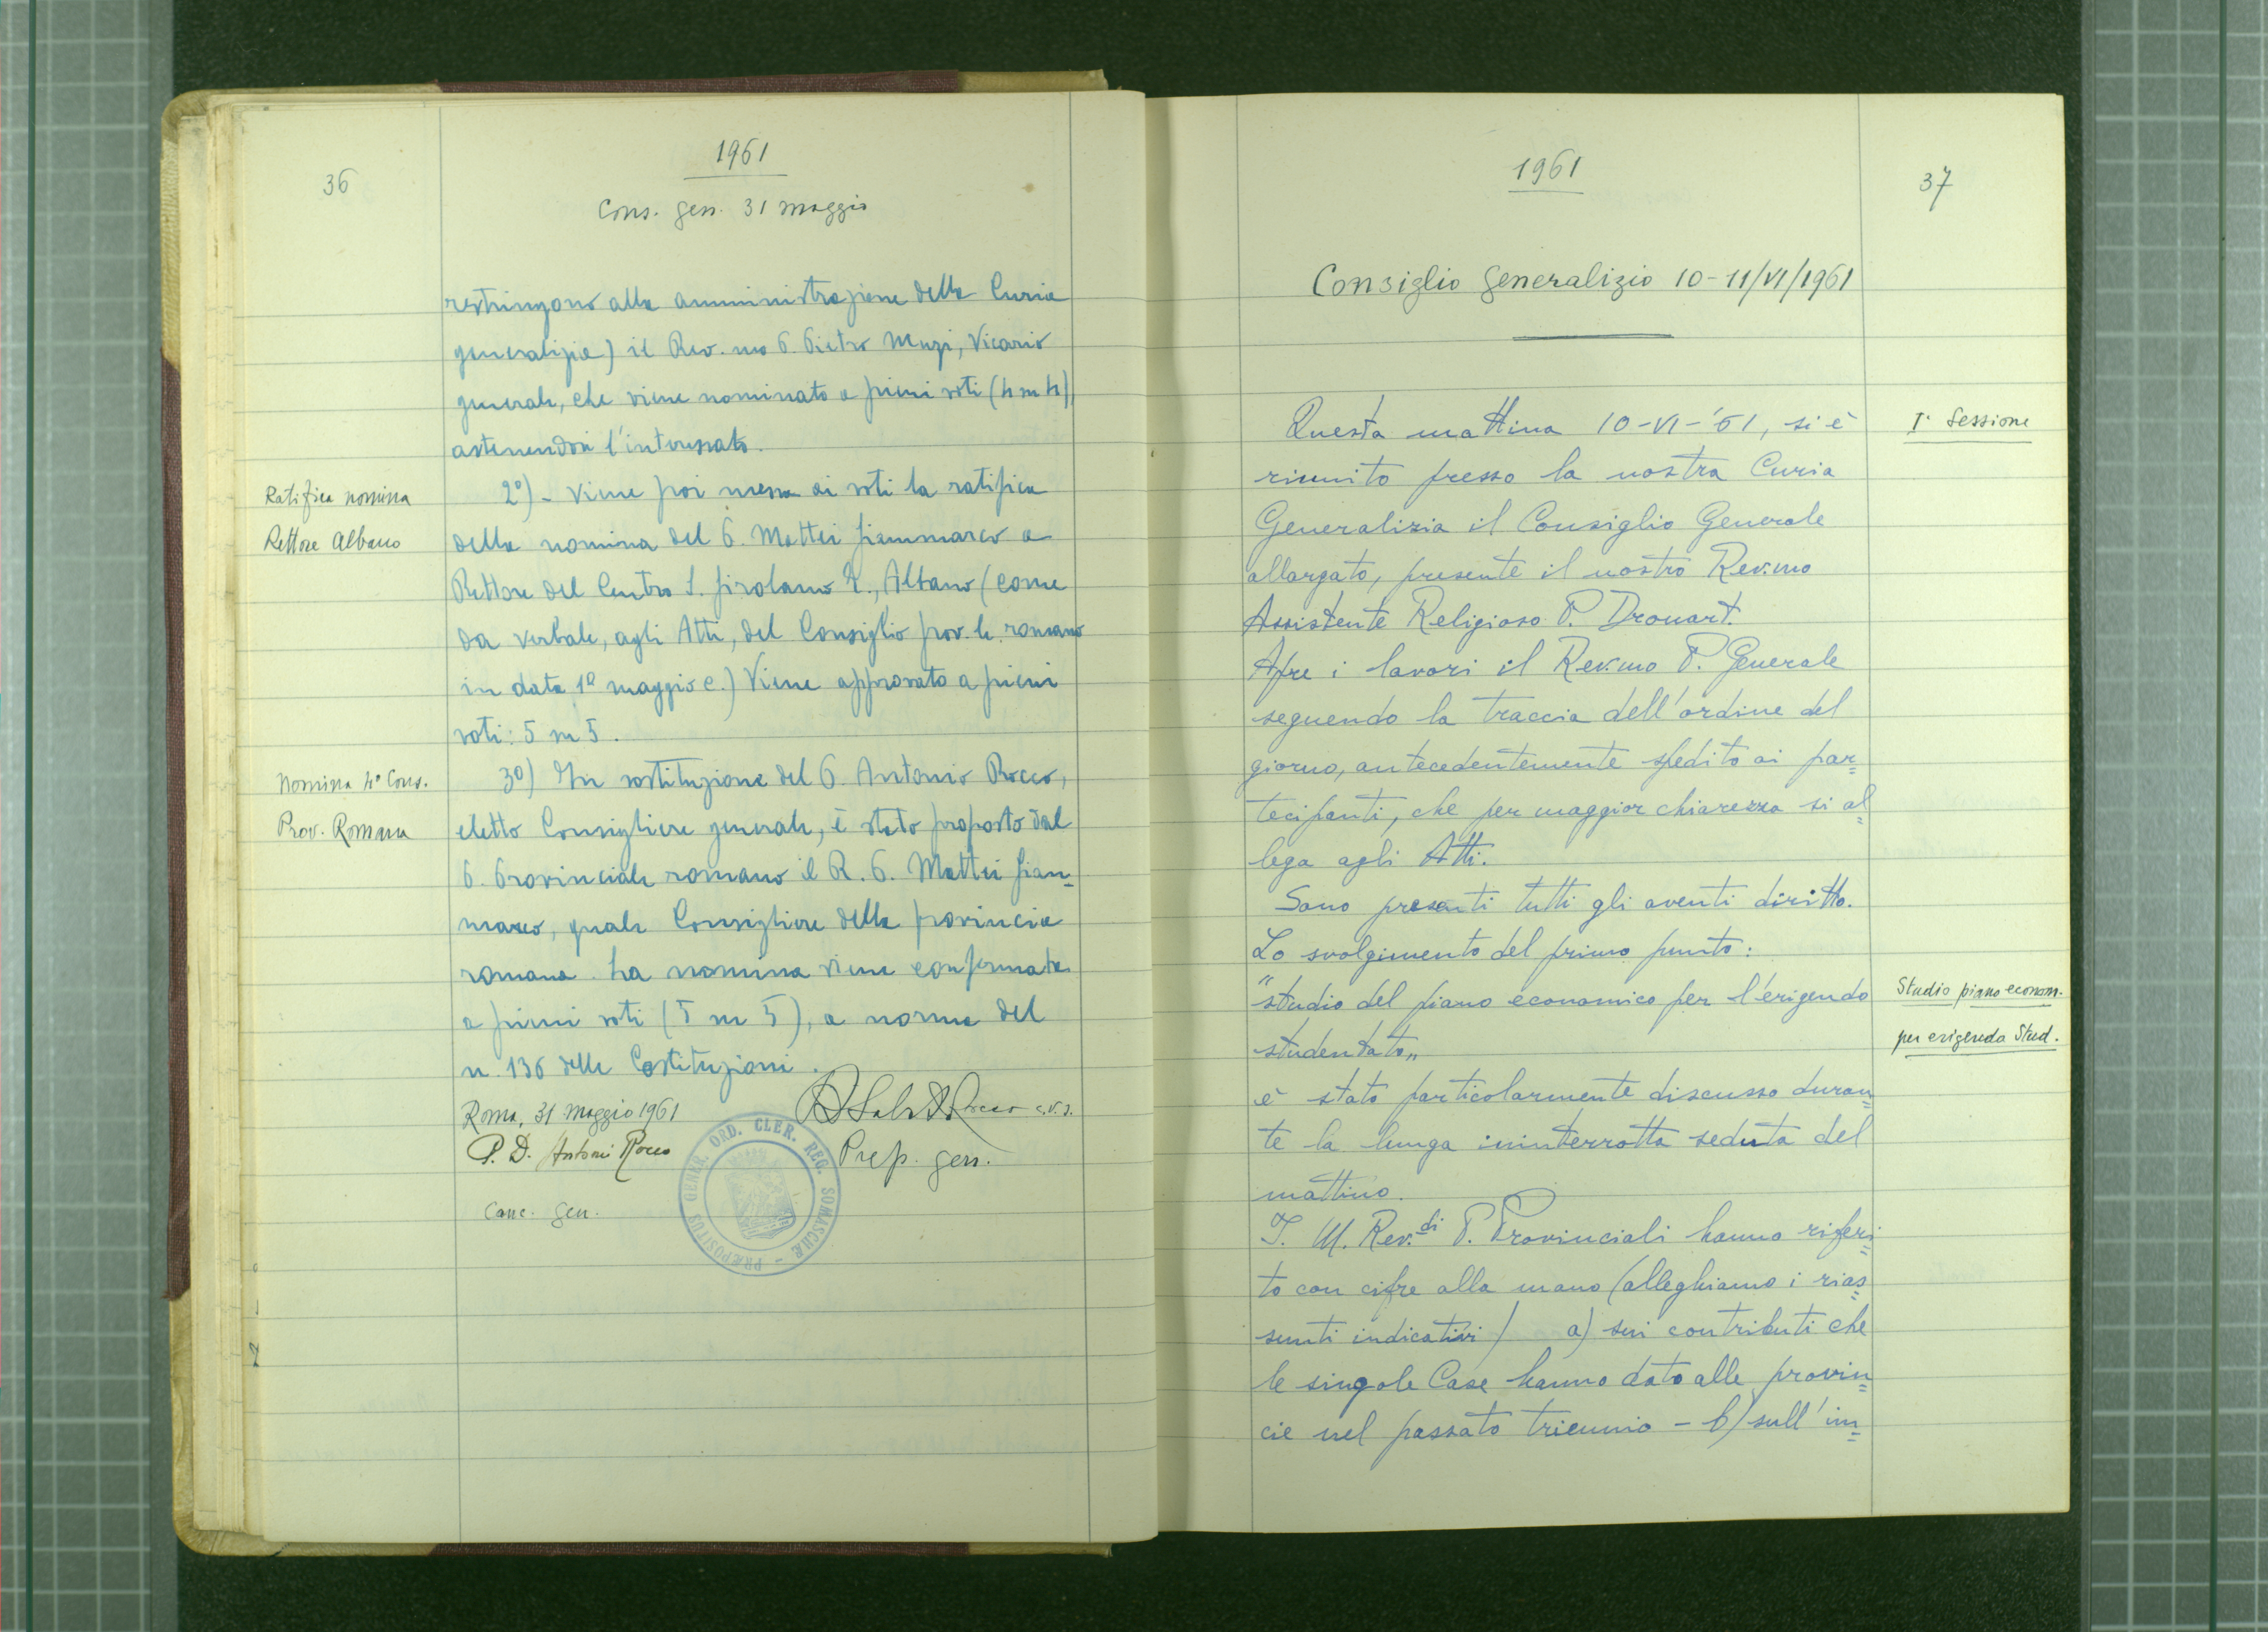 36
1961
Cons. gen. 31 maggio
restringono alla amministrazione della Curia
generalizia) il Rev.mo P. Pietro Muzi, Vicario
generale, che viene nominato a pieni voti (4 su 4)
astenendosi l'interessato.
Ratifica nomina
Rettore Albano
2°) - Viene poi messa ai voti la ratifica
della nomina del P. Mattei Giammarco a
Rettore del Centro S. Girolamo E., Albano (come
da verbale, agli Atti, del Consiglio prov.le romano
in data 1° maggio c.) Viene approvato a pieni
voti: 5 su 5.
Nomina 4° Cons.
Prov. Romana
3°) In sostituzione del P. Antonio Rocco,
eletto Consigliere generale, è stato proposto dal
P. Provinciale romano il R. P. Mattei Giam=
marco, quale Consigliere della provincia
romana. La nomina viene confermata
a pieni voti (5 su 5), a norma del
n. 136 delle Costituzioni.
Roma, 31 maggio 1961
P. D. Antonio Rocco
Canc. gen.
c.r.s.
Prep. gen.
PRÆPOSITUS GENER. ORD. CLER. REG. SOMASCHÆ
1961
37
Consiglio Generalizio 10-11/VI/1961
I° Sessione
Questa mattina 10-VI-'61, si è
riunito presso la nostra Curia
Generalizia il Consiglio Generale
allargato, presente il nostro Rev.mo
Assistente Religioso P. Drouart.
Apre i lavori il Rev.mo P. Generale
seguendo la traccia dell'ordine del
giorno, antecedentemente spedito ai par=
tecipanti, che per maggior chiarezza si al=
lega agli Atti.
Sono presenti tutti gli aventi diritto.
Lo svolgimento del primo punto:
Studio piano econom.
per erigendo Stud.
"studio del piano economico per l'erigendo
studentato"
è stato particolarmente discusso duran=
te la lunga ininterrotta seduta del
mattino.
I. M. Rev.di P. Provinciali hanno riferi=
to con cifre alla mano (alleghiamo i rias=
sunti indicativi) a) sui contributi che
le singole Case hanno dato alle provin=
cie nel passato triennio - b) sull'im=